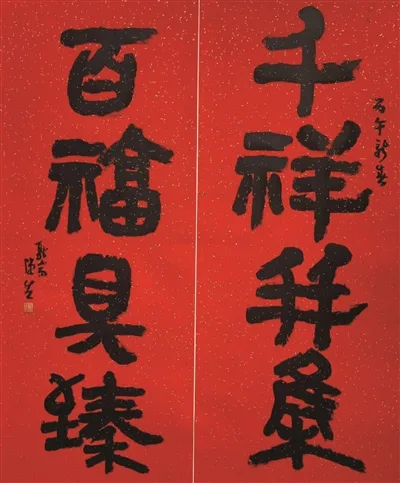 千祥并集
丙午新春
百福具臻